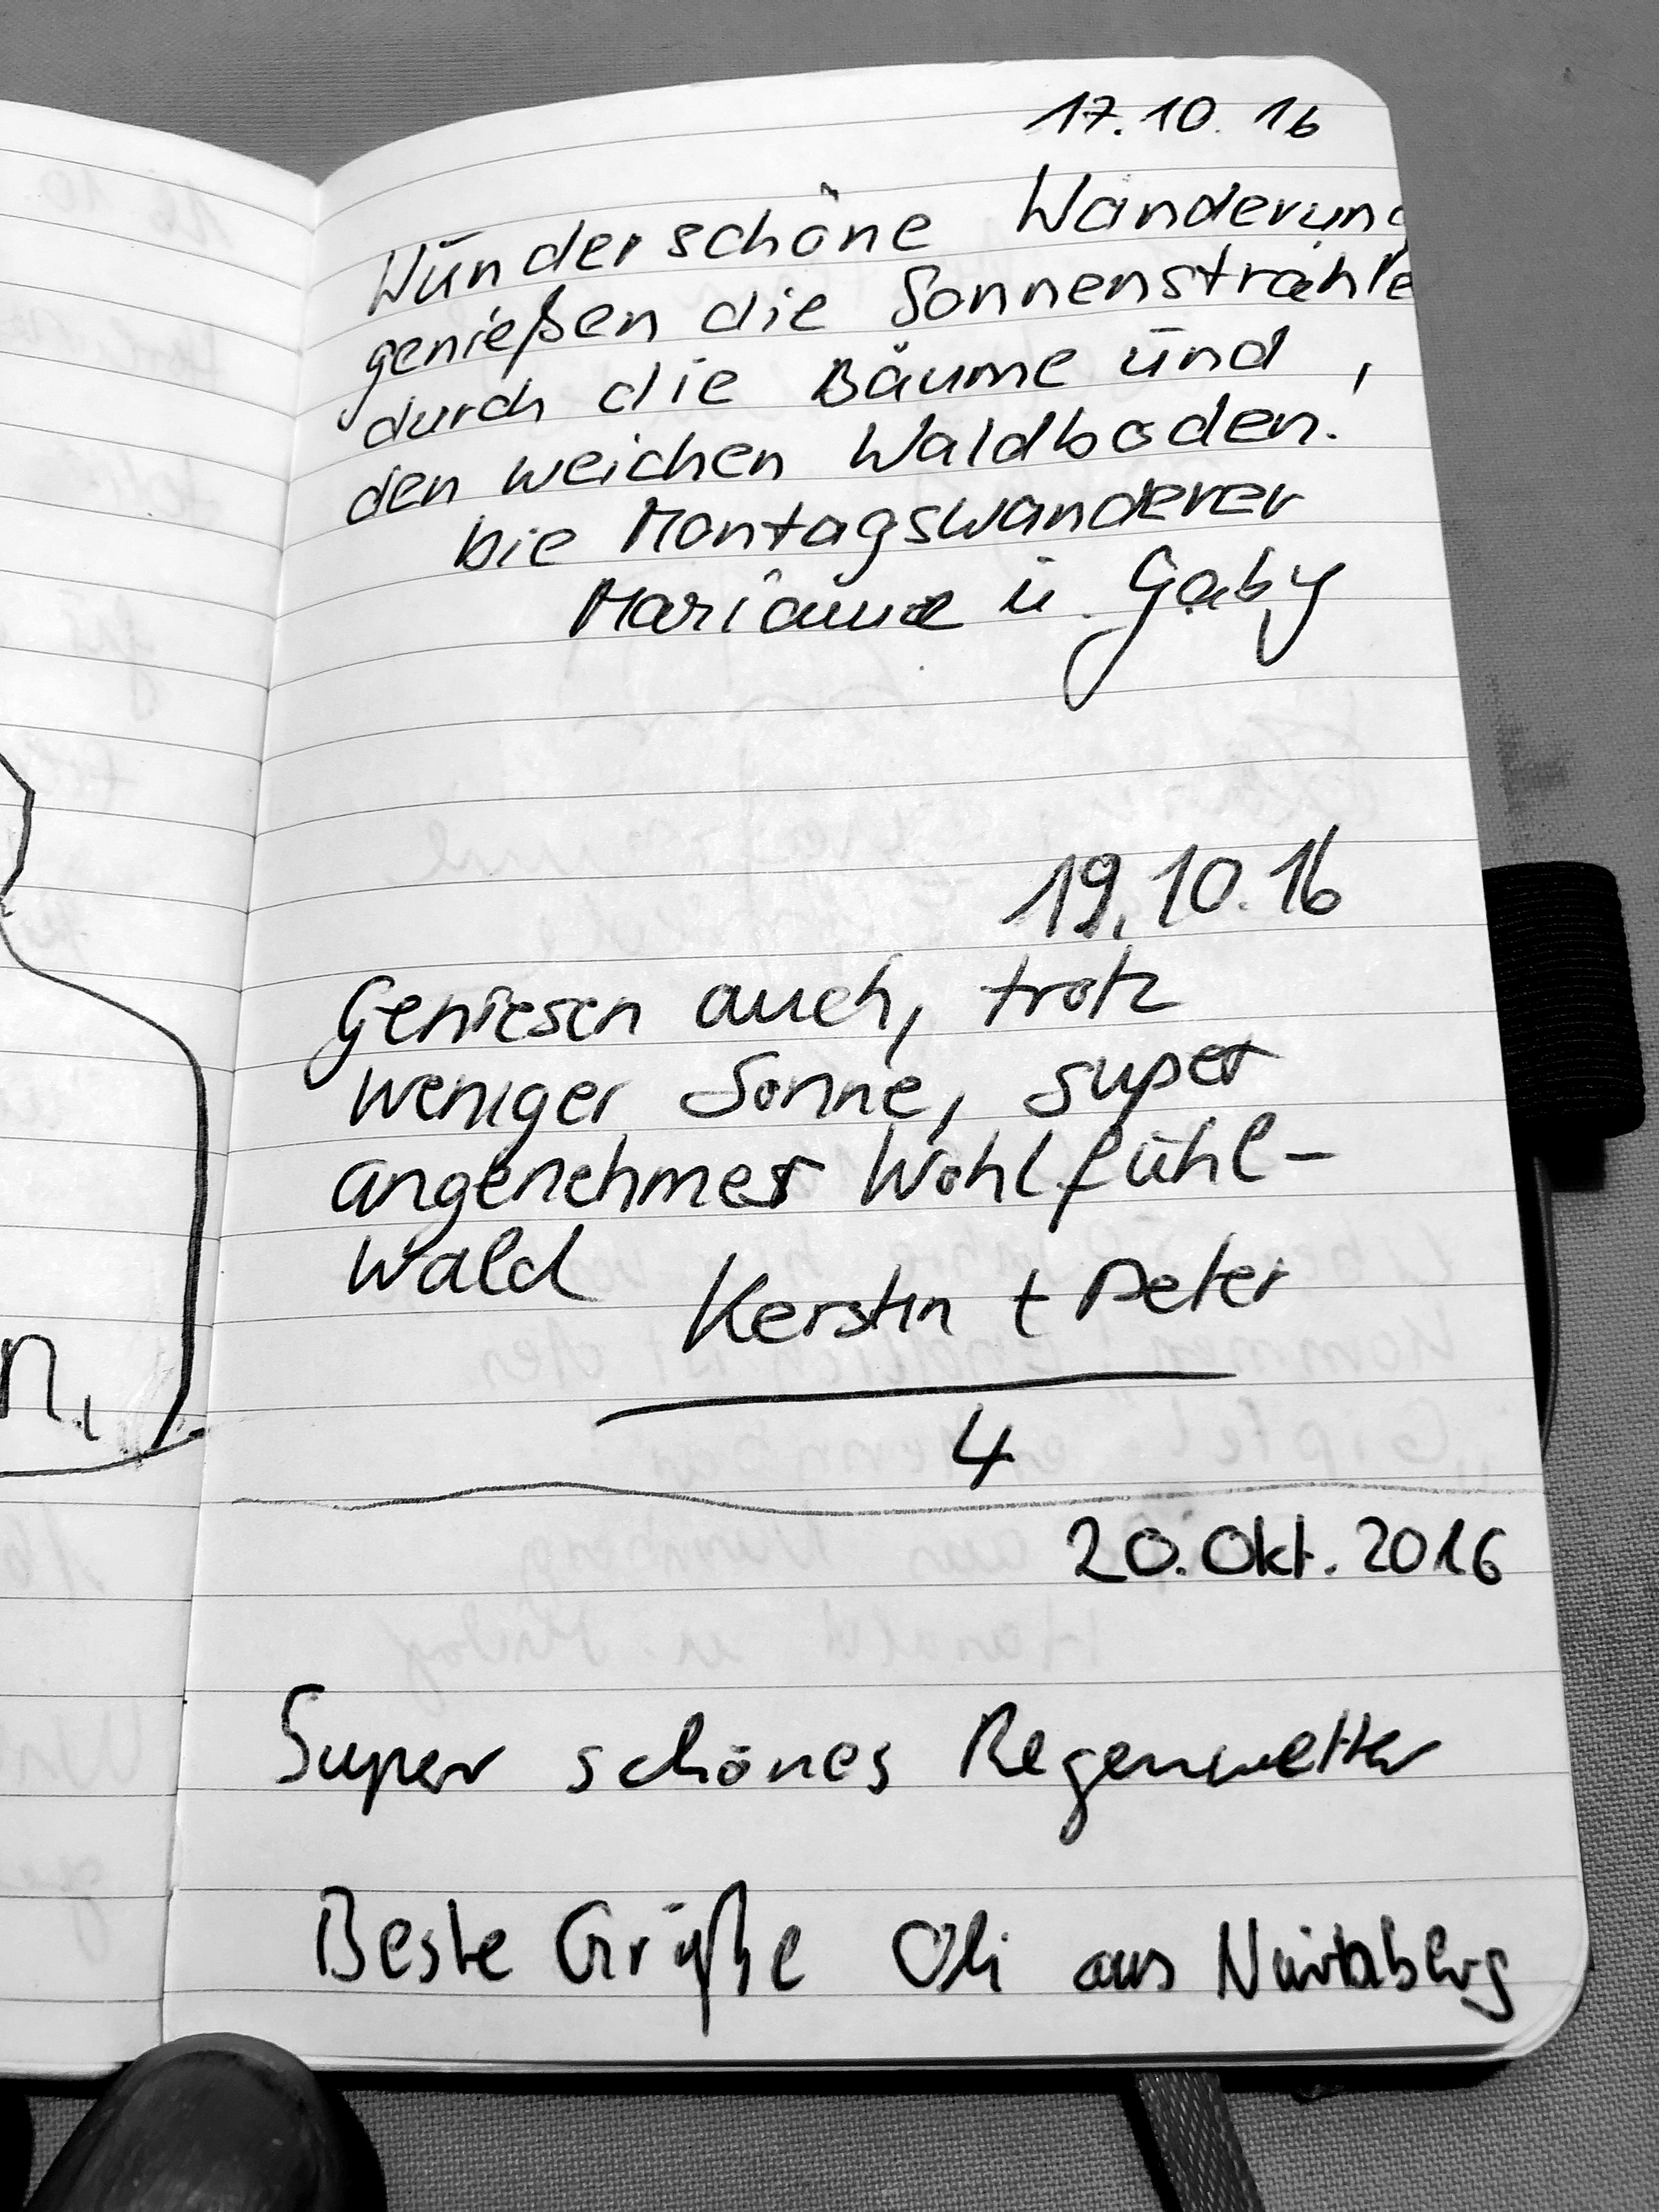 17.10.16
Wunderschöne Wanderung
genießen die Sonnenstrahle
durch die Bäume und
den weichen Waldboden!
Die Montagswanderer
Marianne u. Gaby
19.10.16
Geniesen auch, trotz
weniger Sonne, super
angenehmer Wohlfühl-
wald
Kerstin + Peter
4
20. Okt. 2016
Super schönes Regenwetter
Beste Grüße Oli aus